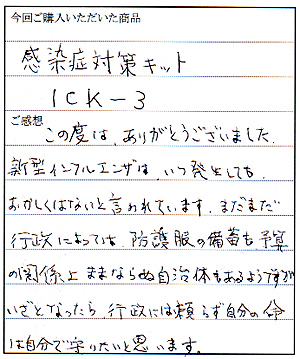 今回ご購入いただいた商品
感染症対策キット
ICK-3
ご感想
この度は、ありがとうございました。
新型インフルエンザは、いつ発生しても
おかしくはないと言われています。まだまだ
行政によっては、防護服の備蓄も予算
の関係上ままならぬ自治体もあるようですが
いざとなったら、行政には頼らず自分の命
は自分で守りたいと思います。